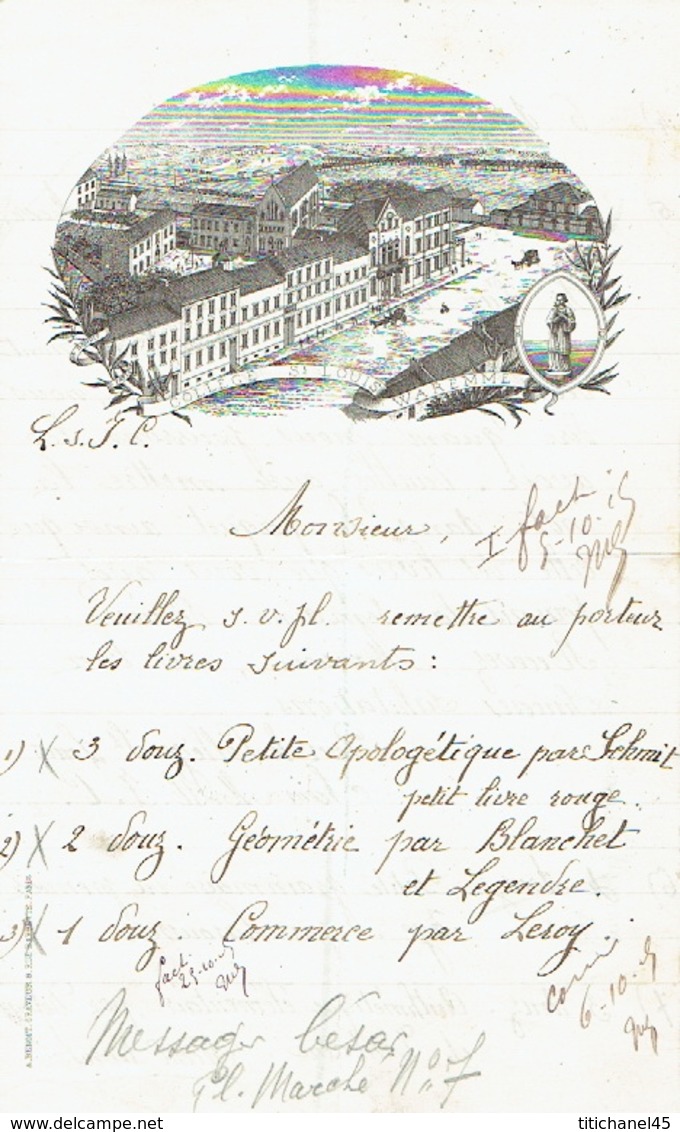 COLLÈGE St LOUIS WAREMME
L. s. J. C.
Monsieur,
fact
5-10-15
Veuillez s. v. pl. remettre au porteur
les livres suivants:
1) X 3 douz. Petite Apologétique par Schmit
petit livre rouge.
2) X 2 douz. Géométrie par Blanchet
et Legendre.
3) X 1 douz. Commerce par Leroy.
fact.
6-10
Messager César
Pl. Marché No 7
titichanel45